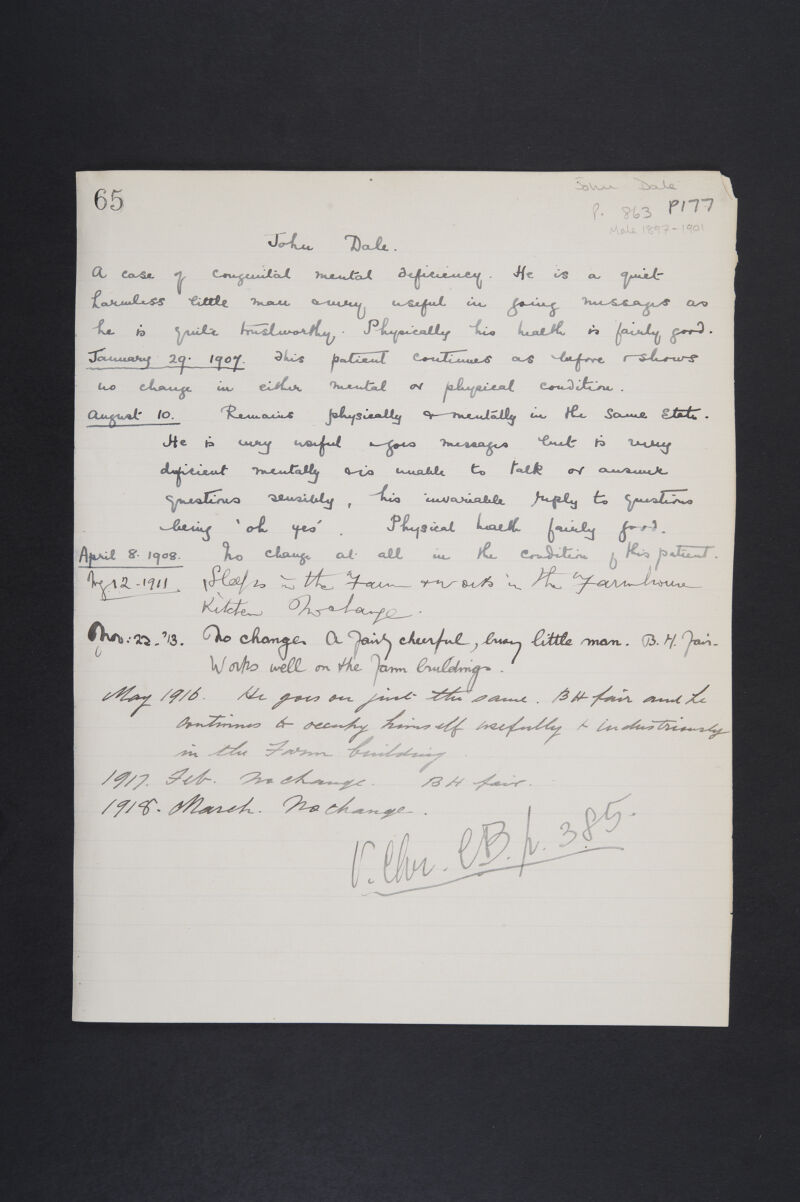 65
John Dale
P. 863 P177
Male 1897-1901
John Dale.
A case of congenital mental deficiency. He is a quiet
harmless little man & very useful in going messages as
he is quite trustworthy. Physically his health is fairly good.
January 29. 1907. This patient continues as before & shows
no change in either mental or physical condition.
August 10. Remains physically & mentally in the same State.
He is very useful & goes messages but is very
deficient mentally & is unable to talk or answer
questions sensibly, his invariable reply to questions
being 'oh yes'. Physical health fairly good.
April 8. 1908. No change at all in the condition of this patient.
12-1911. Sleeps in the Farm & works in the Farmhouse
Kitchen No change.
Nov: 22-'13. No change. A fairly cheerful, busy little man. B.H. fair-
Works well on the farm buildings.
May 1916. He goes on just the same. BH fair and he
continues to occupy himself usefully & industriously
in the Farm building
1917. Feb. No change. BH fair.
1918. March. No change.
V. Chr. CB. p. 385.